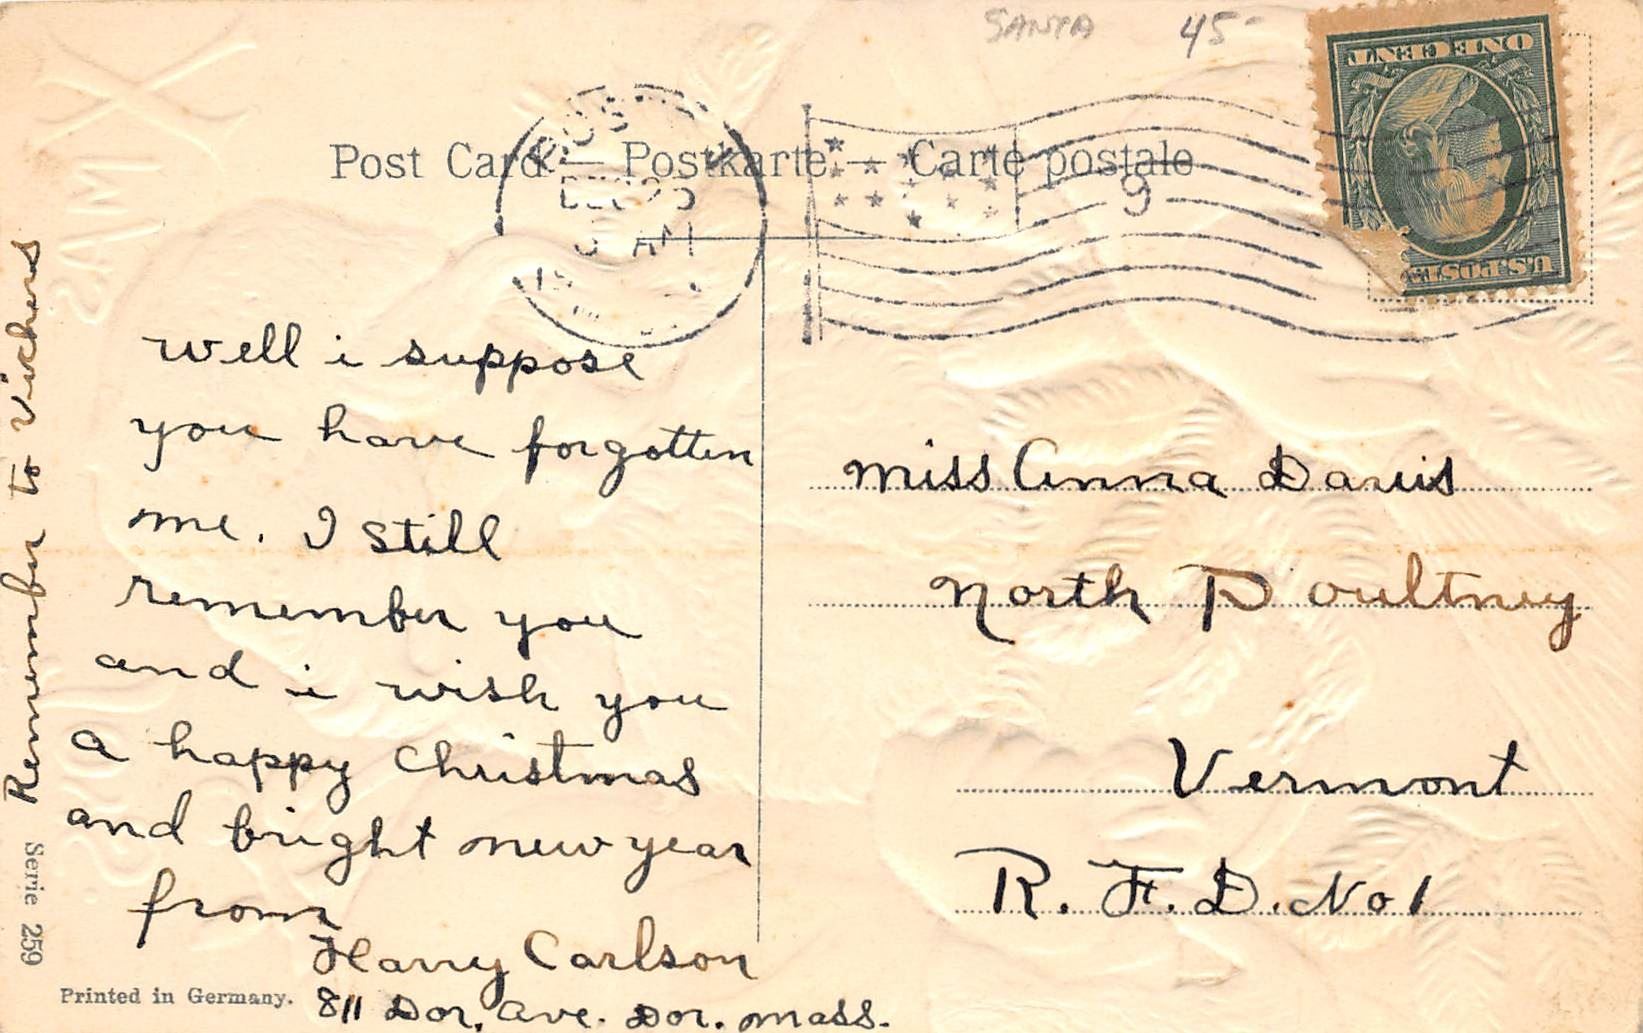 SANTA 45-
Post Card — Postkarte — Carte postale
DEC 25
AM
9
ONE CENT
U.S. POST
well i suppose
you have forgotten
me. I still
remember you
and i wish you
a happy Christmas
and bright new year
from
Harry Carlson
811 Dor. Ave. Dor. Mass.
Remember to Vickers
Miss Anna Davis
North Poultney
Vermont
R. F. D. No 1
Serie 259
Printed in Germany.
XMAS